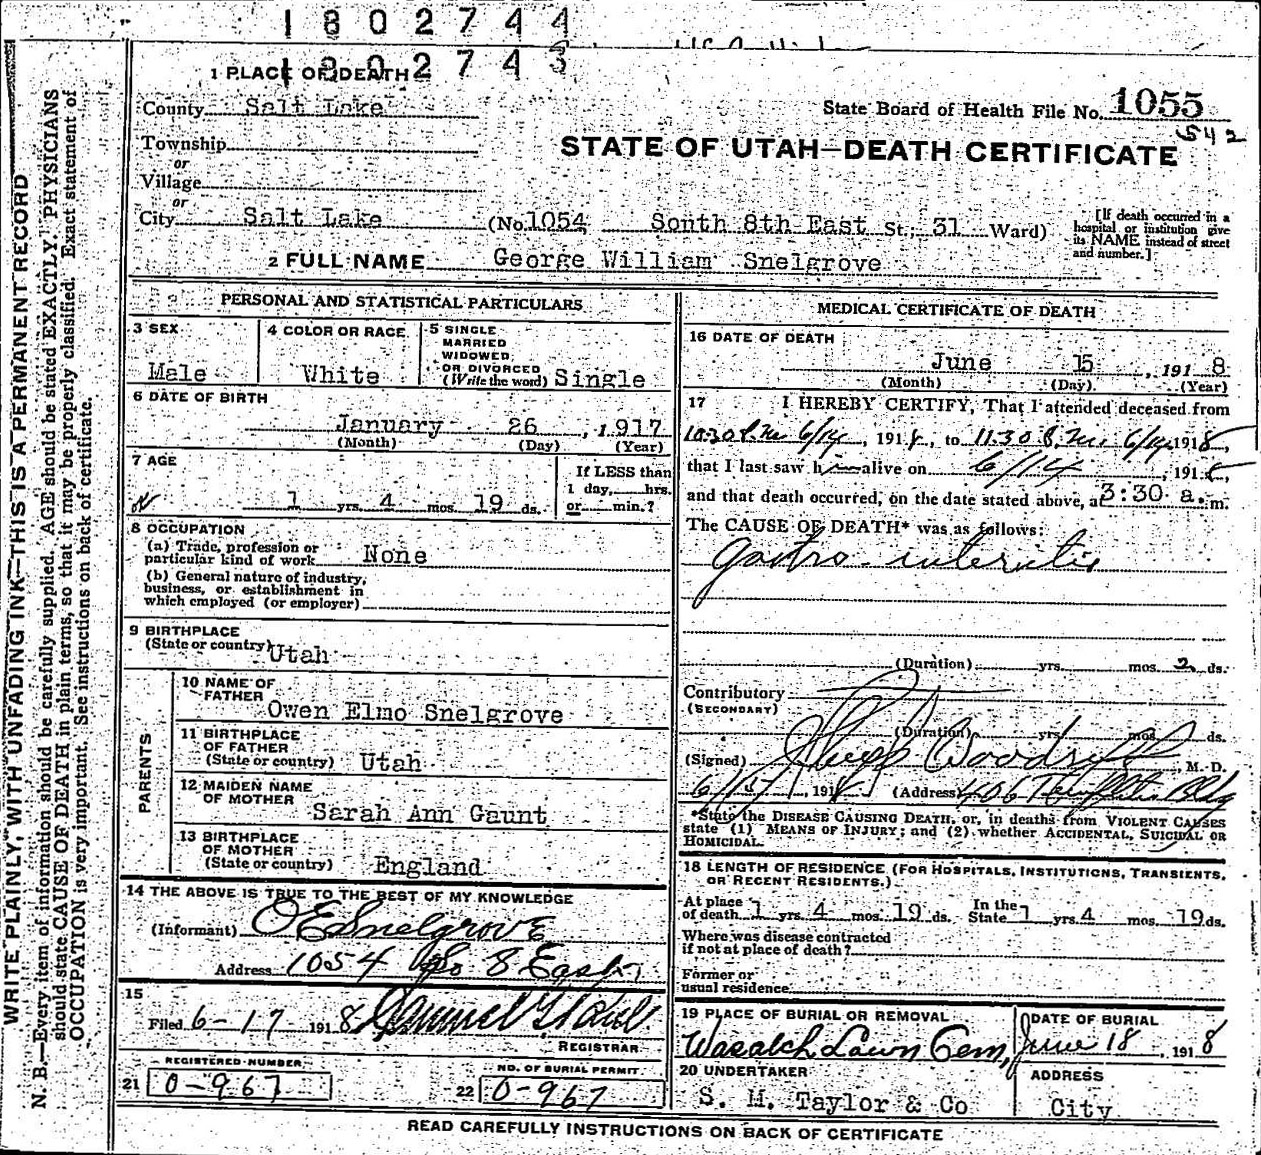 1802744
1802743
1 PLACE OF DEATH
County Salt Lake
State Board of Health File No. 1055
542
Township
or
Village
or
STATE OF UTAH—DEATH CERTIFICATE
City Salt Lake (No. 1054 South 8th East St; 31 Ward)
[If death occurred in a
hospital or institution give
its NAME instead of street
and number.]
2 FULL NAME George William Snelgrove
PERSONAL AND STATISTICAL PARTICULARS
3 SEX
Male
4 COLOR OR RACE
White
5 SINGLE
MARRIED
WIDOWED
OR DIVORCED
(Write the word) Single
6 DATE OF BIRTH
January 26, 1917
(Month) (Day) (Year)
7 AGE
1 yrs. 4 mos. 19 ds.
If LESS than
1 day, hrs.
or min.?
8 OCCUPATION
(a) Trade, profession or
particular kind of work None
(b) General nature of industry,
business, or establishment in
which employed (or employer)
9 BIRTHPLACE
(State or country) Utah
PARENTS
10 NAME OF
FATHER
Owen Elmo Snelgrove
11 BIRTHPLACE
OF FATHER
(State or country) Utah
12 MAIDEN NAME
OF MOTHER
Sarah Ann Gaunt
13 BIRTHPLACE
OF MOTHER
(State or country) England
14 THE ABOVE IS TRUE TO THE BEST OF MY KNOWLEDGE
(Informant) O E Snelgrove
Address 1054 So 8 East
15
Filed 6-17 1918
REGISTRAR
REGISTERED NUMBER
21 0-967
NO. OF BURIAL PERMIT
22 0-967
MEDICAL CERTIFICATE OF DEATH
16 DATE OF DEATH
June 15, 1918
(Month) (Day) (Year)
17 I HEREBY CERTIFY, That I attended deceased from
10:30 P.M 6/14, 1918, to 11:30 P.M 6/14 1918,
that I last saw him alive on 6/14, 1918,
and that death occurred, on the date stated above, at 3:30 a. m.
The CAUSE OF DEATH* was as follows:
Gastro-interitis
(Duration) yrs. mos. 2 ds.
Contributory
(SECONDARY)
(Duration) yrs. mos. ds.
(Signed) Woodruff, M. D.
6/15, 1918 (Address) 406 Templeton Bldg
*State the DISEASE CAUSING DEATH, or, in deaths from VIOLENT CAUSES
state (1) MEANS OF INJURY; and (2) whether ACCIDENTAL, SUICIDAL OR
HOMICIDAL.
18 LENGTH OF RESIDENCE (FOR HOSPITALS, INSTITUTIONS, TRANSIENTS,
OR RECENT RESIDENTS.)
At place
of death 1 yrs. 4 mos. 19 ds. In the
State 1 yrs. 4 mos. 19 ds.
Where was disease contracted
if not at place of death?
Former or
usual residence
19 PLACE OF BURIAL OR REMOVAL
Wasatch Lawn Cem,
DATE OF BURIAL
June 18, 1918
20 UNDERTAKER
S. M. Taylor & Co
ADDRESS
City
READ CAREFULLY INSTRUCTIONS ON BACK OF CERTIFICATE
WRITE PLAINLY, WITH UNFADING INK—THIS IS A PERMANENT RECORD
N. B.—Every item of information should be carefully supplied. AGE should be stated EXACTLY. PHYSICIANS
should state CAUSE OF DEATH in plain terms, so that it may be properly classified. Exact statement of
OCCUPATION is very important. See instructions on back of certificate.